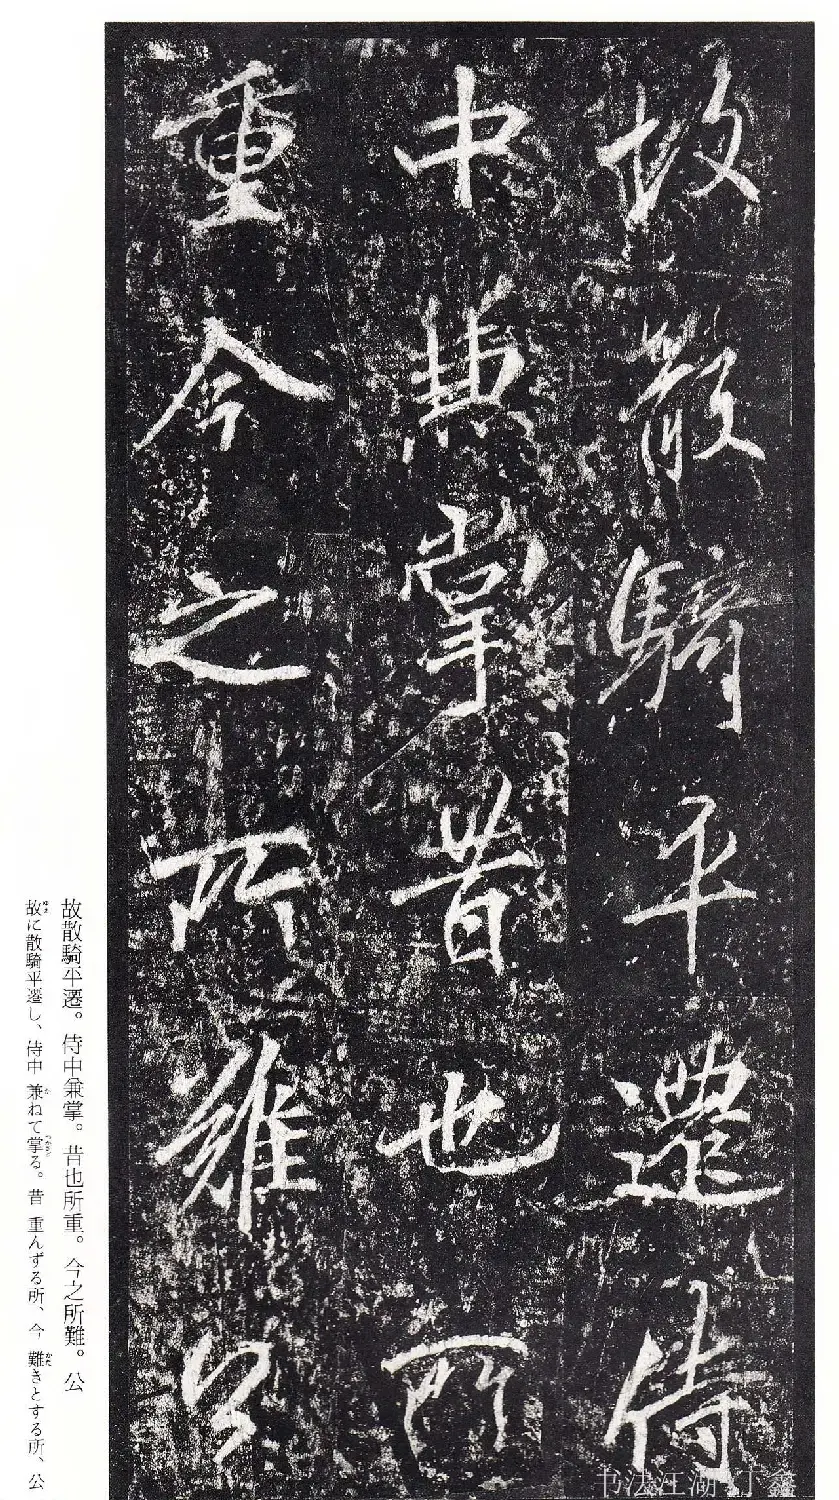 故散騎平遷侍
中兼掌昔也所
重今之所難公
故散騎平遷。侍中兼掌。昔也所重。今之所難。公
故に散騎平遷し、侍中 兼ねて掌る。昔 重んずる所、今 難きとする所、公
书法江湖 丁鑫